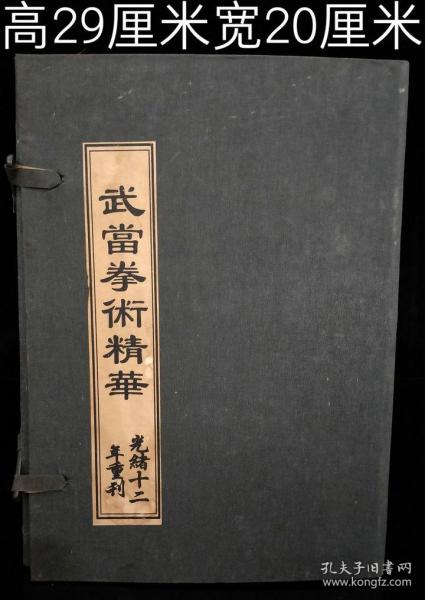 高29厘米宽20厘米
武當拳術精華
光緒十二
年重刊
孔夫子旧書网
www.kongfz.com